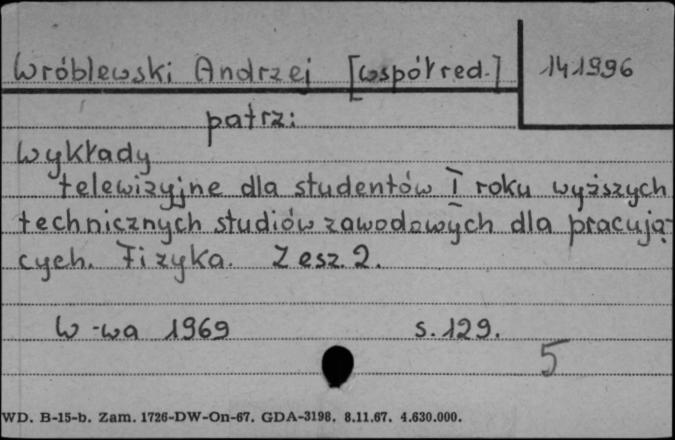 Wróblewski Andrzej [współred.] 141996
patrz:
Wykłady
telewizyjne dla studentów I roku wyższych
technicznych studiów zawodowych dla pracują-
cych. Fizyka. Zesz. 2.
W-wa 1969 s. 129.
5
WD. B-15-b. Zam. 1726-DW-On-67. GDA-3198. 8.11.67. 4.630.000.